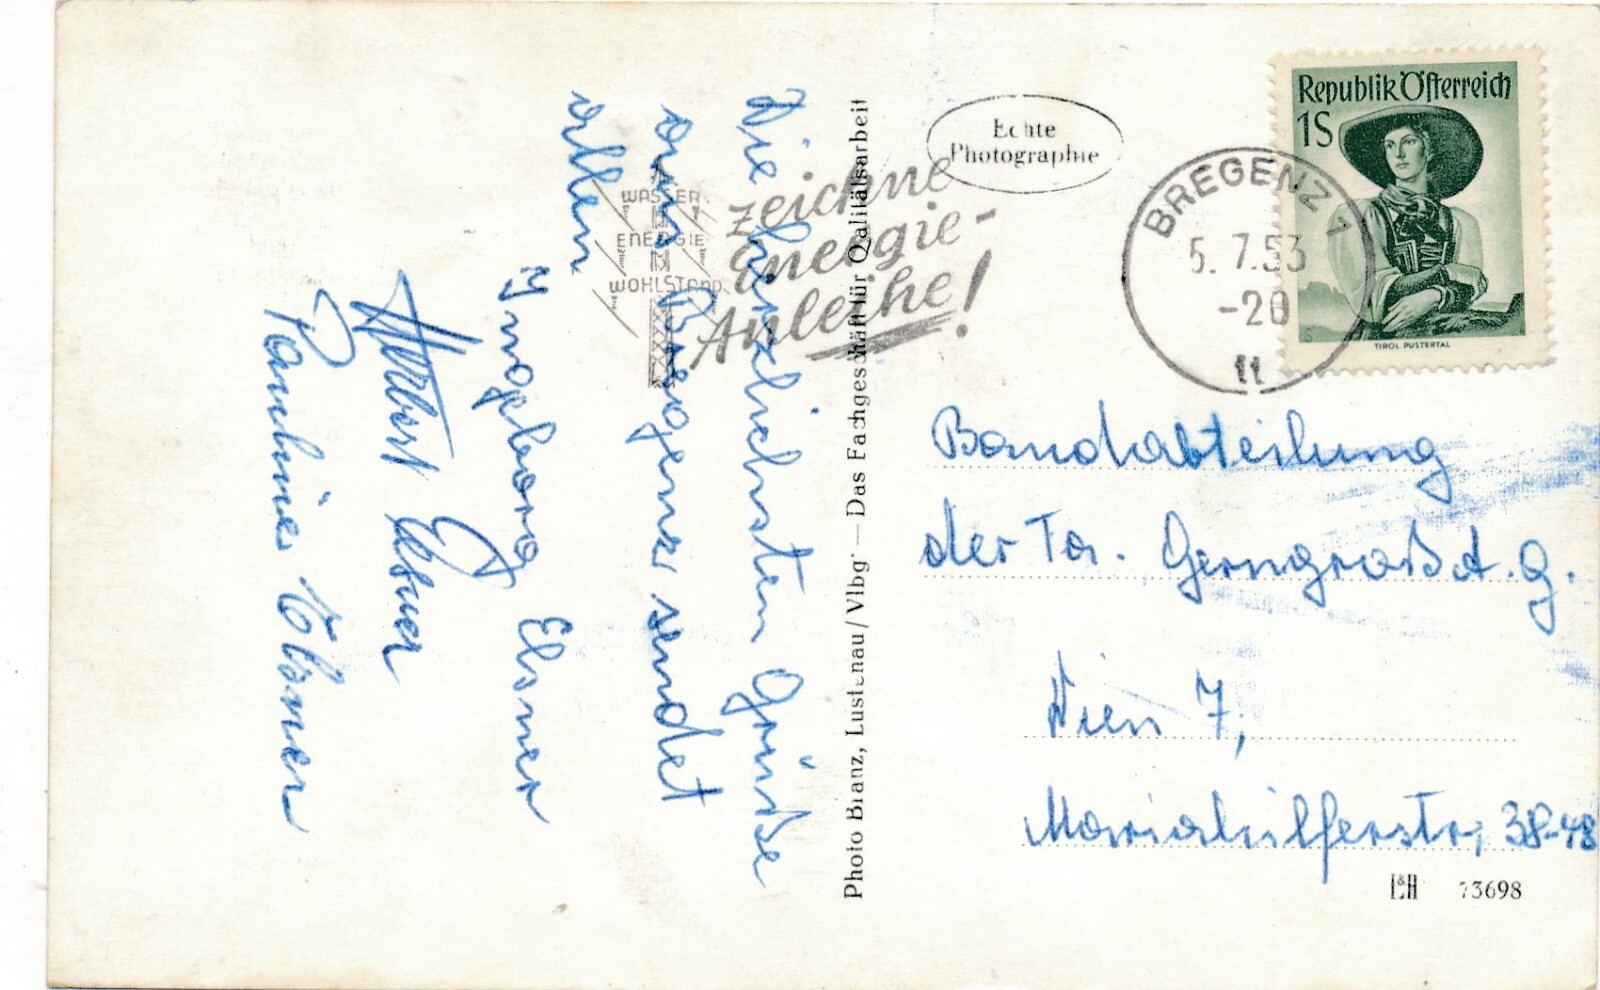 Die herzlichsten Grüße
aus Bregenz sendet
allen
Ingeborg Elsner
Herbert Elsner
Pauline Elsner
WASSER
ENERGIE
WOHLSTAND
zeichne
energie-
Anleihe!
Photo Branz, Lustenau / Vlbg. — Das Fachgeschäft für Qalitätsarbeit
Echte
Photographie
BREGENZ 1
5. 7.53
-20
tt
Republik Österreich
1S
TIROL PUSTERTAL
Bandabteilung
der Fa. Gerngroß A.G.
Wien 7,
Mariahilferstr, 38-48
L&H 73698